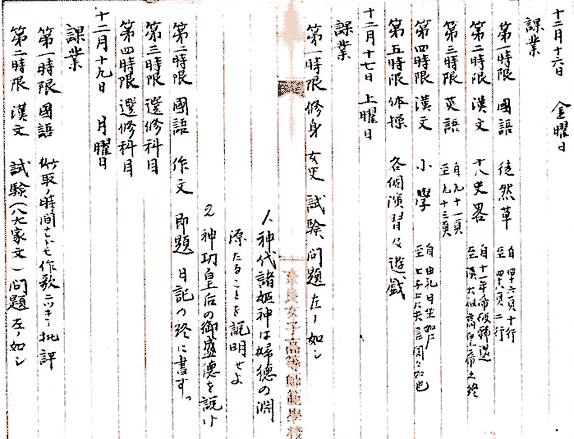 十二月十六日 金曜日
課業
第一時限 國語 徒然草 自四十六頁十行 至四十八頁二行
第二時限 漢文 十八史畧
第三時限 英語 自九十一頁 至九十三頁
第四時限 漢文 小學
第五時限 体操 各個演習及遊戯
十二月十七日 土曜日
課業
第一時限 修身 女史 試験 問題左ノ如シ
1.神代諸姫神は婦徳の淵
源たることを説明せよ
2.神功皇后の御盛徳を説け
奈良女子高等師範學校
第二時限 國語 作文 即題 日記の終に書す。
第三時限 選修科目
第四時限 選修科目
十二月十九日 月曜日
課業
第一時限 國語 作歌ニツキ批評
第二時限 漢文 試験(八大家文)問題左ノ如シ